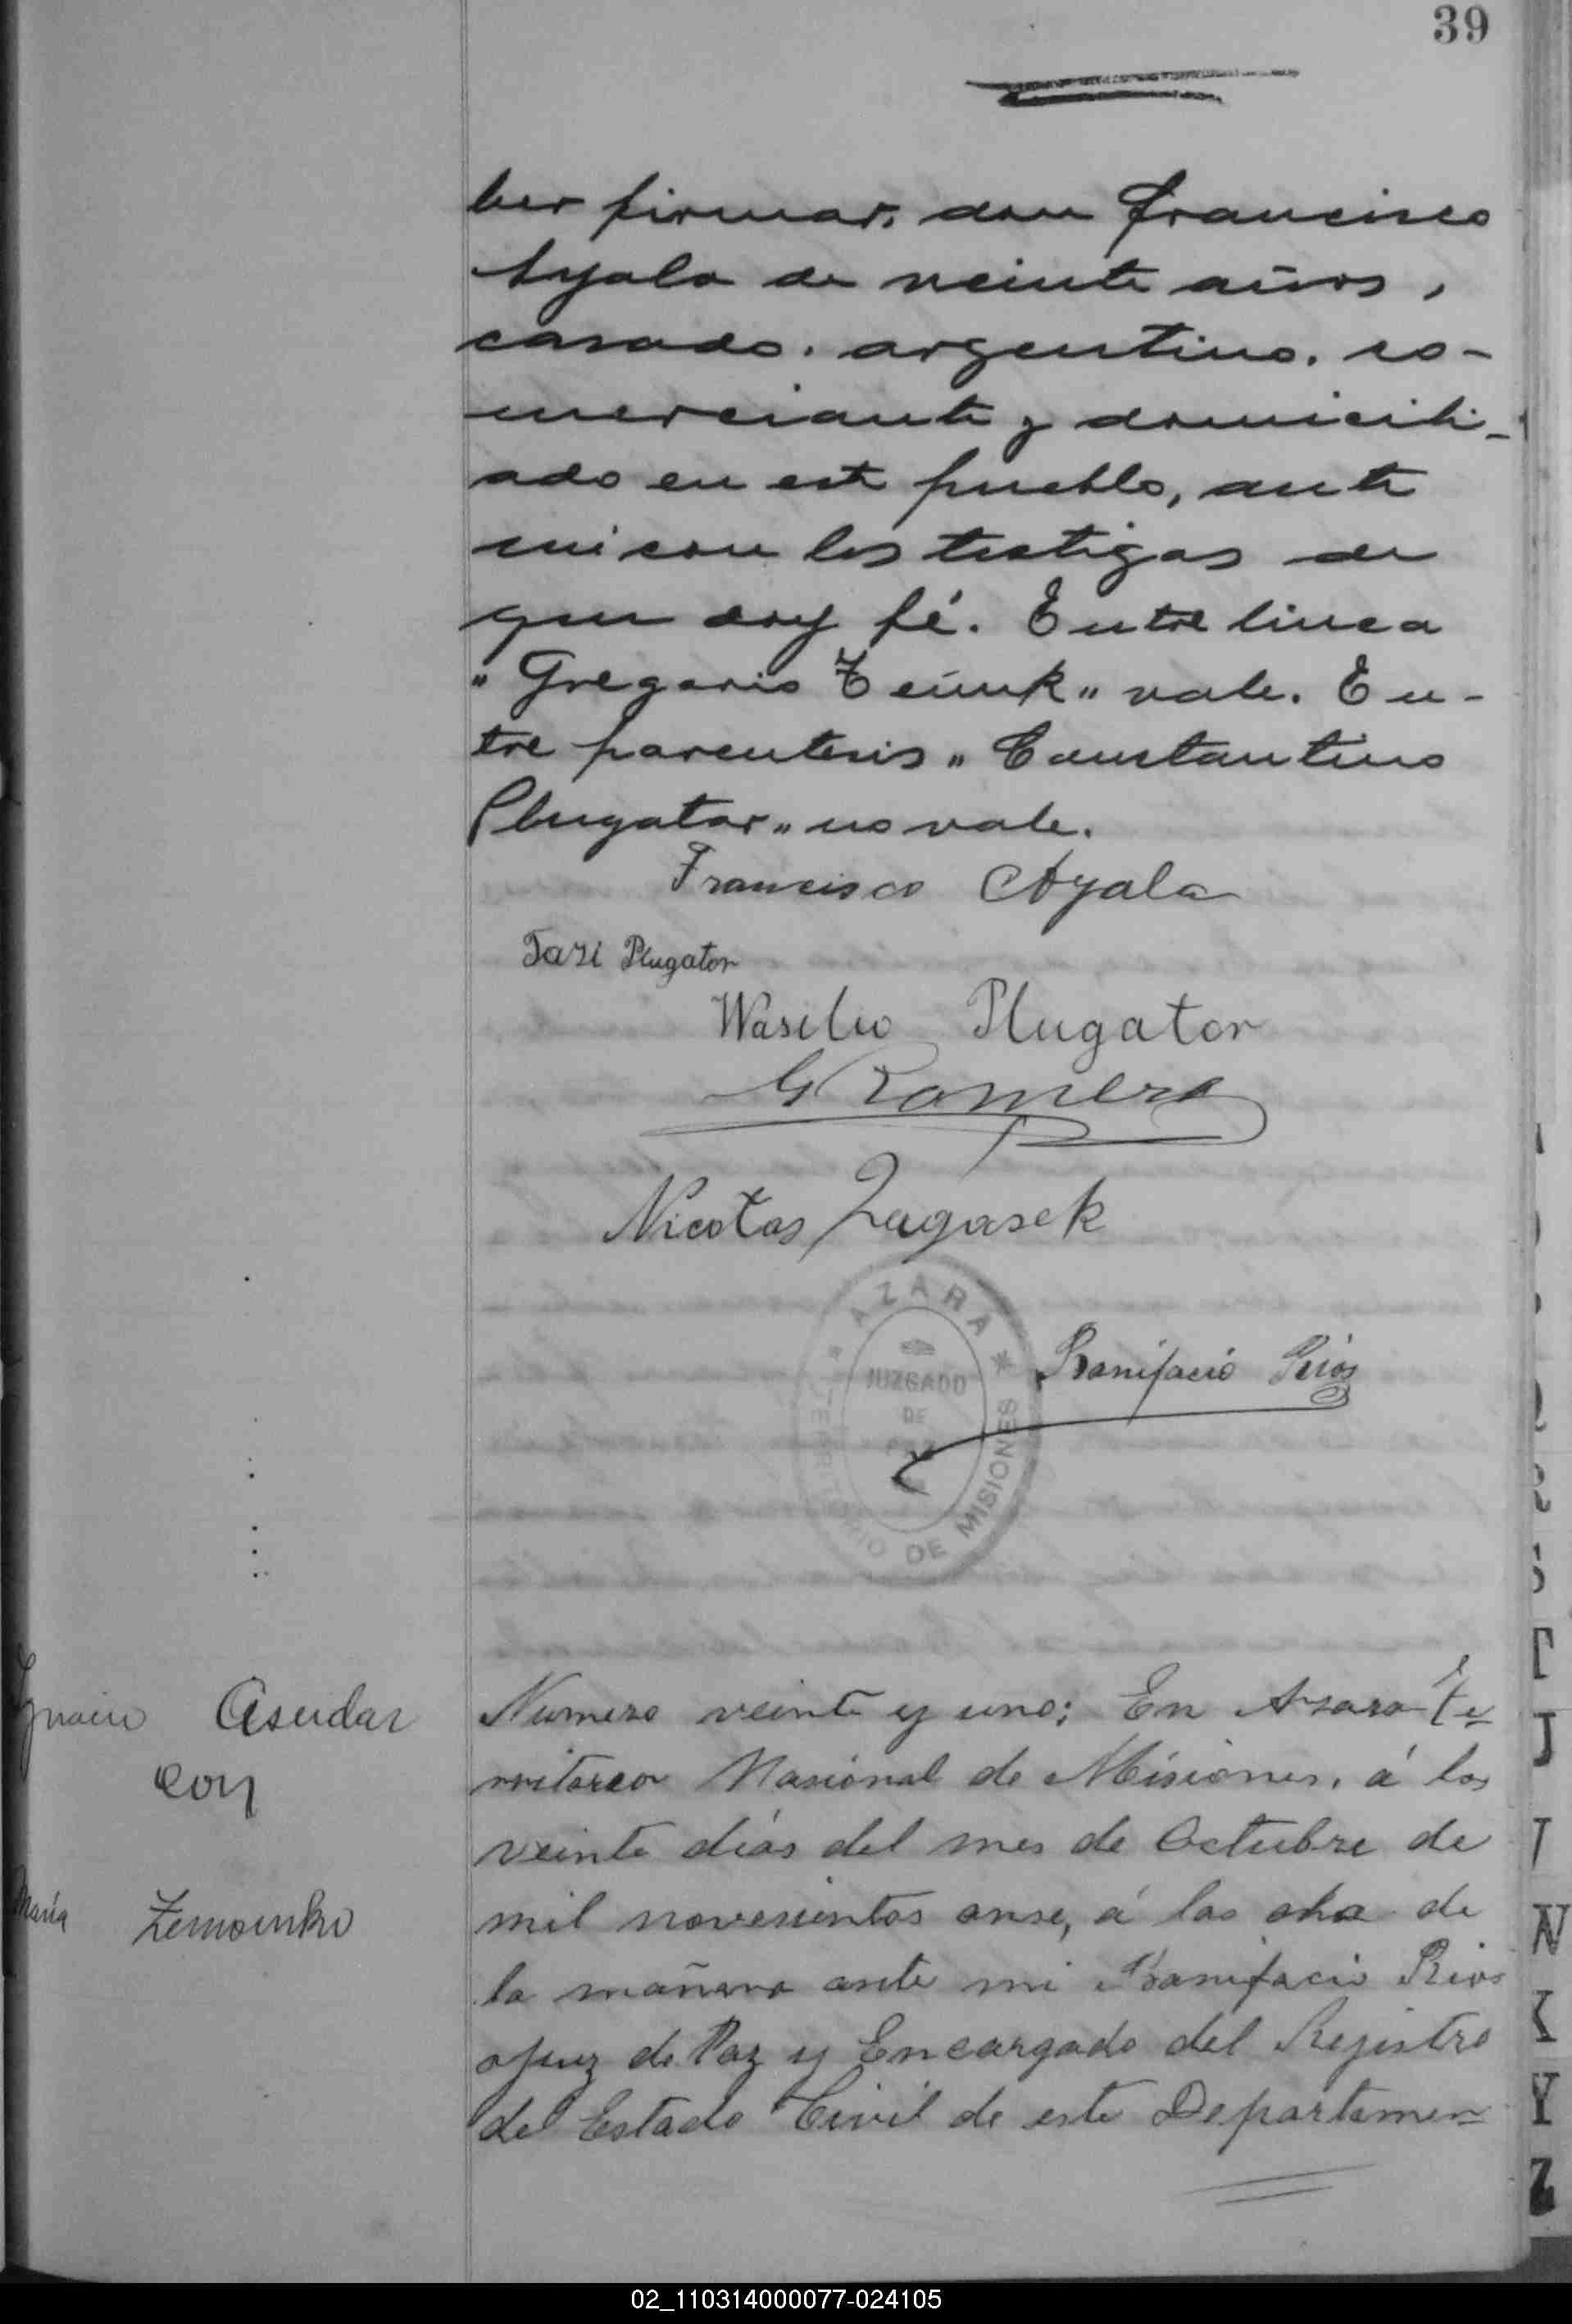 39
ber firmar, don Francisco
Ayala de veinte años,
casado, argentino, co-
merciante y domicili-
ado en este pueblo, ante
mi con los testigos de
que doy fé. Entre linea
"Gregorio" vale. En-
tre parentesis "Constantino
Plugator" no vale.
Francisco Ayala
Plugator
Wasilio Plugator
G Romero
Nicolas Zagasek
AZARA
JUZGADO
DE
PAZ
TERRITORIO DE MISIONES
Bonifacio Rios
Ignacio Asudar
con
Maria
Numero veinte y uno; En Azara te-
rritorio Nasional de Misiones, á los
veinte dias del mes de Octubre de
mil novesientos onse, á las oho de
la mañana ante mi Bonifacio Rios
Juez de Paz y Encargado del Rejistro
del Estado Civil de este Departamen-
T
J
T
N
K
Y
Z
02_110314000077-024105